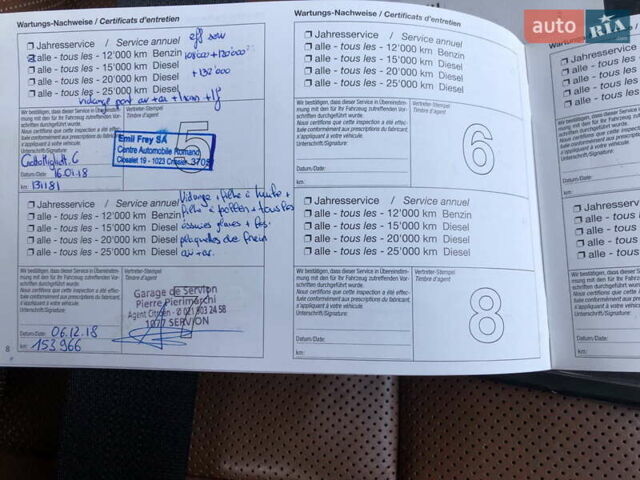 Wartungs-Nachweise / Certificats d'entretien
Jahresservice / Service annuel
alle - tous les - 12'000 km Benzin 108'000 + 120'000
alle - tous les - 15'000 km Diesel + 132'000
alle - tous les - 20'000 km Diesel
alle - tous les - 25'000 km Diesel
vidange pont av + ar +
Wir bestätigen, dass dieser Service in Übereinstimmung mit den für Ihr Fahrzeug zutreffenden Vorschriften durchgeführt wurde.
Nous certifions que cette inspection a été effectuée conformément aux prescriptions du fabricant, s'appliquant à votre véhicule.
Unterschrift/Signature:
Vertreter-Stempel
Timbre d'agent
5
Emil Frey SA
Centre Automobile Romand
Closalet 19 - 1023 Crissier
Datum/Date: 16.01.18
km: 131181
Jahresservice / Service annuel
alle - tous les - 12'000 km Benzin
alle - tous les - 15'000 km Diesel
alle - tous les - 20'000 km Diesel
alle - tous les - 25'000 km Diesel
Vidange + filtre à huile +
filtre à pollen + tous les
essuies glaces +
plaquettes de frein
av + ar.
Wir bestätigen, dass dieser Service in Übereinstimmung mit den für Ihr Fahrzeug zutreffenden Vorschriften durchgeführt wurde.
Nous certifions que cette inspection a été effectuée conformément aux prescriptions du fabricant, s'appliquant à votre véhicule.
Unterschrift/Signature:
Vertreter-Stempel
Timbre d'agent
Garage de Servion
Pierre Pierimarchi
Agent Citroën - 021 903 24 58
1077 SERVION
Datum/Date: 06.12.18
km: 153966
8
Wartungs-Nachweise / Certificats d'entretien
Jahresservice / Service annuel
alle - tous les - 12'000 km Benzin
alle - tous les - 15'000 km Diesel
alle - tous les - 20'000 km Diesel
alle - tous les - 25'000 km Diesel
Wir bestätigen, dass dieser Service in Übereinstimmung mit den für Ihr Fahrzeug zutreffenden Vorschriften durchgeführt wurde.
Nous certifions que cette inspection a été effectuée conformément aux prescriptions du fabricant, s'appliquant à votre véhicule.
Unterschrift/Signature:
Vertreter-Stempel
Timbre d'agent
6
Datum/Date:
km:
Jahresservice / Service annuel
alle - tous les - 12'000 km Benzin
alle - tous les - 15'000 km Diesel
alle - tous les - 20'000 km Diesel
alle - tous les - 25'000 km Diesel
Wir bestätigen, dass dieser Service in Übereinstimmung mit den für Ihr Fahrzeug zutreffenden Vorschriften durchgeführt wurde.
Nous certifions que cette inspection a été effectuée conformément aux prescriptions du fabricant, s'appliquant à votre véhicule.
Unterschrift/Signature:
Vertreter-Stempel
Timbre d'agent
8
Datum/Date:
km:
Jahresservice
alle - tous les
alle - tous les
alle - tous les
alle - tous les
Datum/Date:
km:
Jahresservice
alle - tous les
alle - tous les
alle - tous les
alle - tous les
Datum/Date:
km:
auto RIA.com